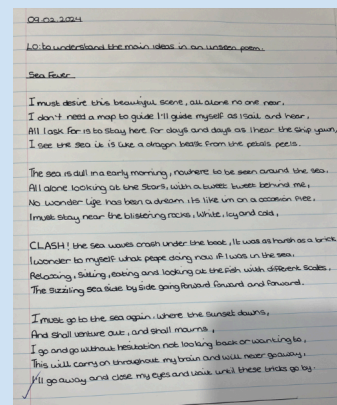 09.02.2024
LO: to understand the main ideas in an unseen poem.
Sea Fever
I must desire this beautiful scene, all alone no one near,
I don't need a map to guide I'll guide myself as I sail and hear,
All I ask for is to stay here for days and days as I hear the ship yawn,
I see the sea it is like a dragon beast from the petals peels.
The sea is dull in early morning, nowhere to be seen around the sea,
All alone looking at the stars, with a tweet tweet behind me,
No wonder life has been a dream, its like im on a occasion free,
I must stay near the blistering rocks, White, Icy and cold,
CLASH! the sea waves crash under the boat, It was as harsh as a brick
I wonder to myself what peope doing now if I was in the sea,
Relaxing, Sitting, eating and looking at the fish with different Scales,
The Sizziling sea side by side going forward forward and forward.
I must go to the sea again. where the sunset dawns,
And shall venture out, and shall mourns,
I go and go without hesitation not looking back or wanting to,
This will carry on throughout my brain and will never go away,
I'll go away and close my eyes and wait until these tricks go by.